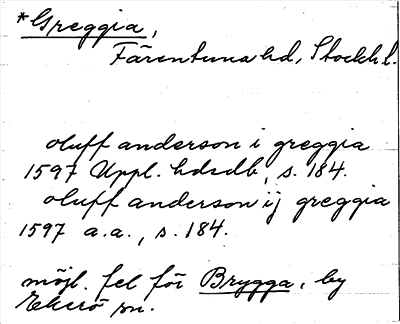 *Greggia,
Färentuna hd, Stockh l.
oluff anderson i greggia
1597 Uppl. hdrdb, s. 184.
oluff anderson ij greggia
1597 a.a., s. 184.
möjl. fel för Brygga, by
Ekerö sn.